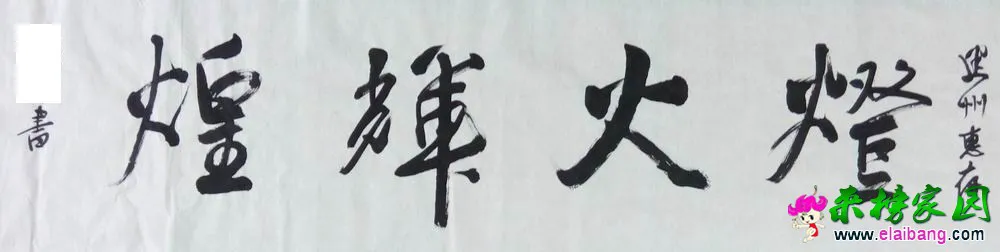 州惠存
燈火輝煌
書
来榜家园
www.elaibang.com